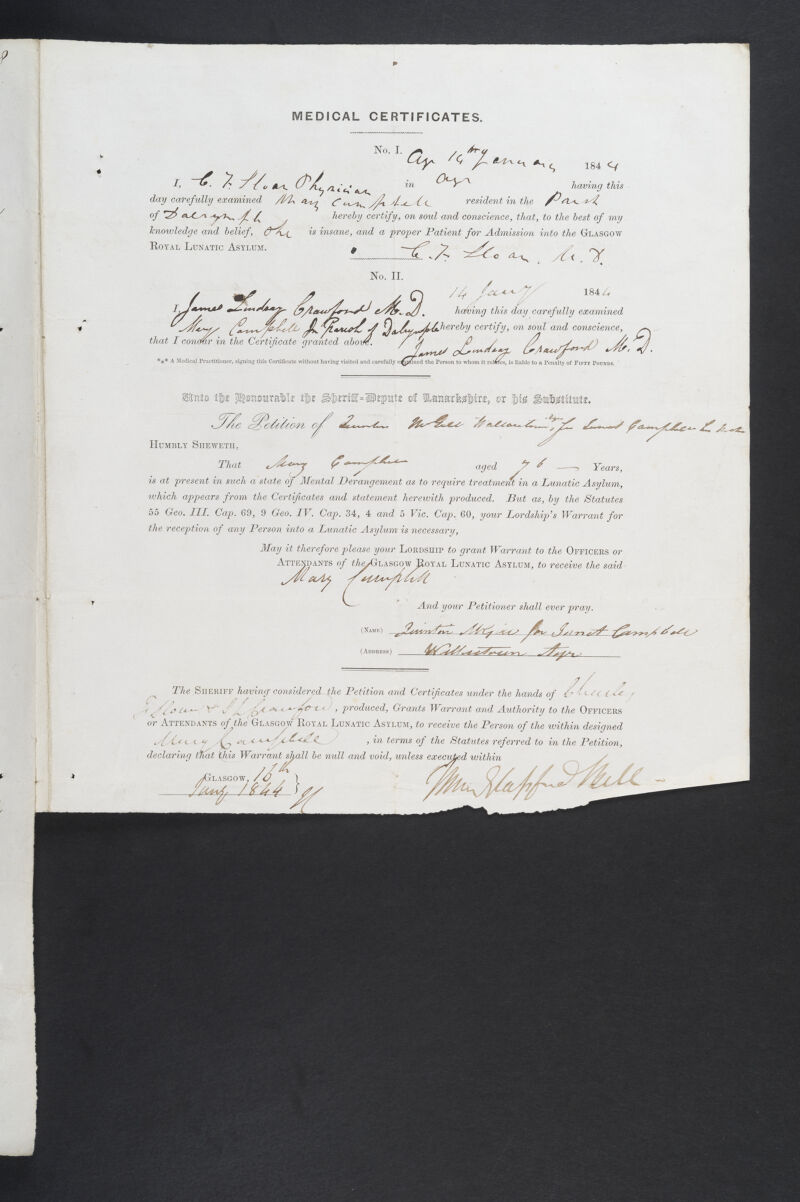 MEDICAL CERTIFICATES.
No. I. Ayr 14th January 1844
I, C. F. Sloan Physician in Ayr having this
day carefully examined Mary Campbell resident in the Parish
of Dalrymple hereby certify, on soul and conscience, that, to the best of my
knowledge and belief, She is insane, and a proper Patient for Admission into the GLASGOW
ROYAL LUNATIC ASYLUM. C. F. Sloan, M.D.
No. II.
14 Jany 1844
I, James Lindsay Crawford M.D. having this day carefully examined
Mary Campbell In Parish of Dalrymple hereby certify, on soul and conscience,
that I concur in the Certificate granted above. James Lindsay Crawford M.D.
*** A Medical Practitioner, signing this Certificate without having visited and carefully examined the Person to whom it relates, is liable to a Penalty of FIFTY POUNDS.
Unto the Honourable the Sheriff-Depute of Lanarkshire, or his Substitute.
The Petition of Quintin McGill Wallacetown Ayr, for Janet Campbell
HUMBLY SHEWETH,
That Mary Campbell aged 76 — Years,
is at present in such a state of Mental Derangement as to require treatment in a Lunatic Asylum,
which appears from the Certificates and statement herewith produced. But as, by the Statutes
55 Geo. III. Cap. 69, 9 Geo. IV. Cap. 34, 4 and 5 Vic. Cap. 60, your Lordship's Warrant for
the reception of any Person into a Lunatic Asylum is necessary,
May it therefore please your LORDSHIP to grant Warrant to the OFFICERS or
ATTENDANTS of the GLASGOW ROYAL LUNATIC ASYLUM, to receive the said
Mary Campbell
And your Petitioner shall ever pray.
(NAME) Quintin McGill for Janet Campbell
(ADDRESS) Wallacetown Ayr
The SHERIFF having considered the Petition and Certificates under the hands of Charles
F Sloan & J L Crawford, produced, Grants Warrant and Authority to the OFFICERS
or ATTENDANTS of the GLASGOW ROYAL LUNATIC ASYLUM, to receive the Person of the within designed
Mary Campbell, in terms of the Statutes referred to in the Petition,
declaring that this Warrant shall be null and void, unless executed within
GLASGOW, 16th
Jany 1844 Bell